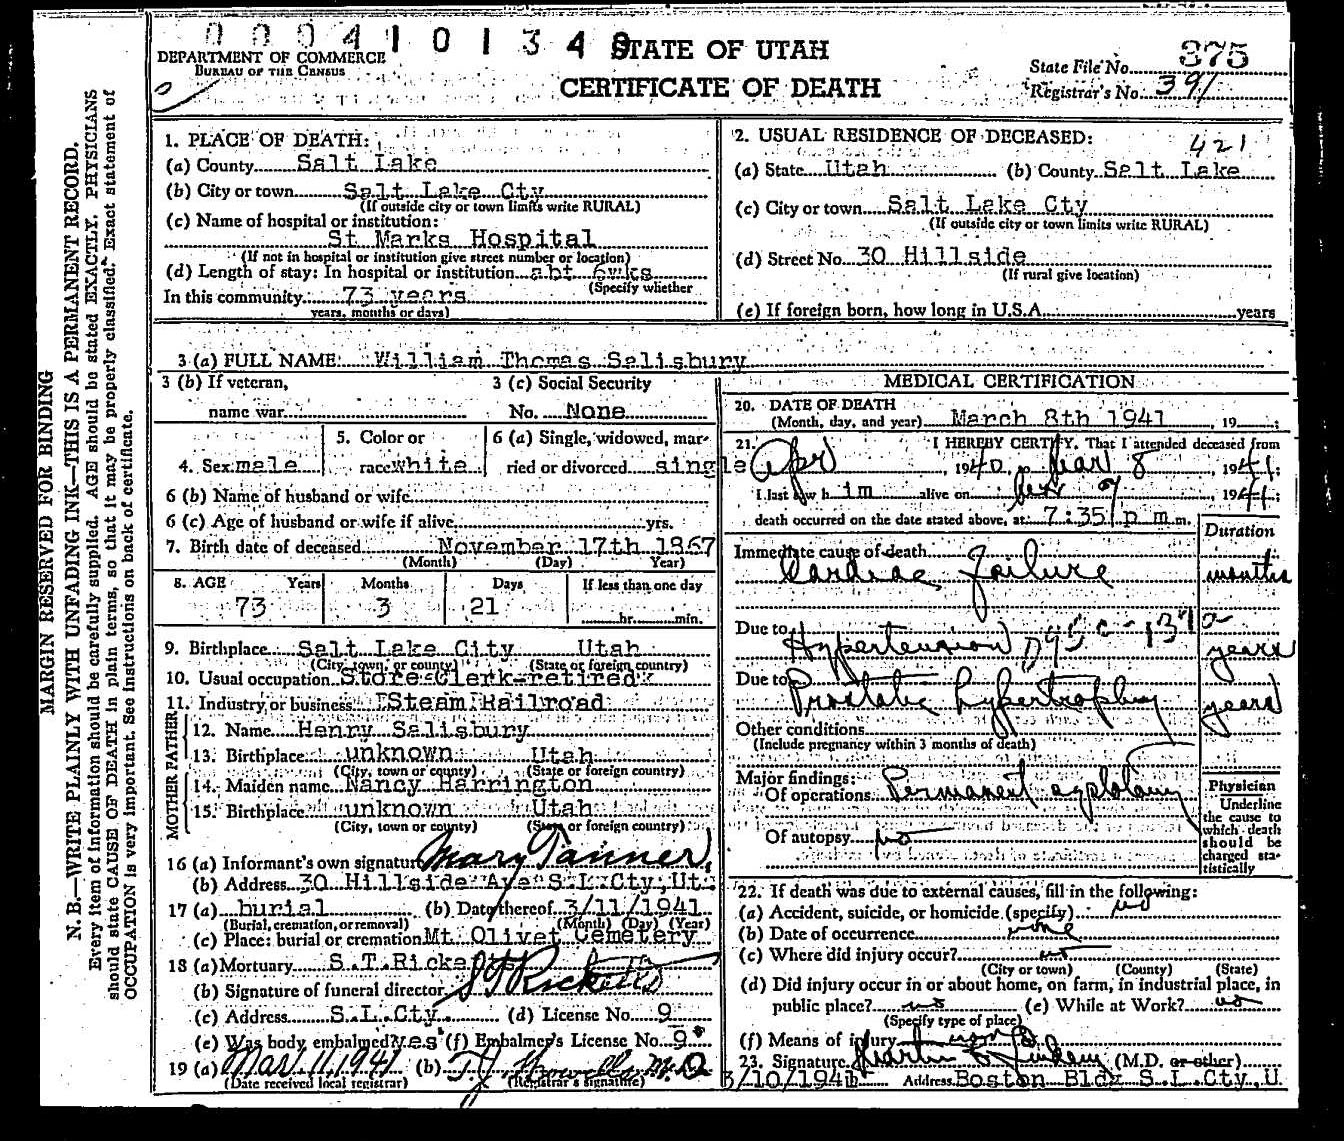 0004101349
STATE OF UTAH
CERTIFICATE OF DEATH
DEPARTMENT OF COMMERCE
BUREAU OF THE CENSUS
State File No. 375
Registrar's No. 391
MARGIN RESERVED FOR BINDING
N. B.—WRITE PLAINLY WITH UNFADING INK—THIS IS A PERMANENT RECORD.
Every item of information should be carefully supplied. AGE should be stated EXACTLY. PHYSICIANS
should state CAUSE OF DEATH in plain terms, so that it may be properly classified. Exact statement of
OCCUPATION is very important. See instructions on back of certificate.
1. PLACE OF DEATH:
(a) County Salt Lake
(b) City or town Salt Lake Cty
(If outside city or town limits write RURAL)
(c) Name of hospital or institution:
St Marks Hospital
(If not in hospital or institution give street number or location)
(d) Length of stay: In hospital or institution abt 6wks
(Specify whether
In this community 73 years
years, months or days)
2. USUAL RESIDENCE OF DECEASED:
421
(a) State Utah (b) County Salt Lake
(c) City or town Salt Lake Cty
(If outside city or town limits write RURAL)
(d) Street No. 30 Hillside
(If rural give location)
(e) If foreign born, how long in U.S.A. years
3 (a) FULL NAME William Thomas Salisbury
3 (b) If veteran,
name war
3 (c) Social Security
No. None
4. Sex male
5. Color or
race white
6 (a) Single, widowed, mar-
ried or divorced single
6 (b) Name of husband or wife
6 (c) Age of husband or wife if alive yrs.
7. Birth date of deceased November 17th 1867
(Month) (Day) Year)
8. AGE Years Months Days If less than one day
73 3 21 hr. min.
9. Birthplace Salt Lake City Utah
(City, town, or county) (State or foreign country)
10. Usual occupation Store Clerk-retired
11. Industry or business Steam Railroad
FATHER
12. Name Henry Salisbury
13. Birthplace unknown Utah
(City, town or county) (State or foreign country)
MOTHER
14. Maiden name Nancy Harrington
15. Birthplace unknown Utah
(City, town or county) (State or foreign country)
16 (a) Informant's own signature Mary Tanner
(b) Address 30 Hillside Ave S.L.Cty, Ut.
17 (a) burial (b) Date thereof 3/11/1941
(Burial, cremation, or removal) (Month) (Day) (Year)
(c) Place: burial or cremation Mt. Olivet Cemetery
18 (a) Mortuary S.T.Ricketts
(b) Signature of funeral director S T Ricketts
(c) Address S.L.Cty. (d) License No. 9
(e) Was body embalmed? yes (f) Embalmer's License No. 9
19 (a) Mar. 11, 1941 (b) T.J. Howells M.D
(Date received local registrar) (Registrar's signature)
MEDICAL CERTIFICATION
20. DATE OF DEATH
(Month, day, and year) March 8th 1941, 19 ;
21. I HEREBY CERTIFY, That I attended deceased from
Apr, 1940, Mar 8, 1941;
I last saw him alive on Mar 7, 1941;
death occurred on the date stated above, at 7:35 p m m.
Duration
Immediate cause of death
Cardiac Failure months
Due to
Hypertension years
Due to Prostatic hypertrophy years
Other conditions
(Include pregnancy within 3 months of death)
Major findings:
Of operations Permanent
Of autopsy no
Physician
Underline
the cause to
which death
should be
charged sta-
tistically
22. If death was due to external causes, fill in the following:
(a) Accident, suicide, or homicide (specify) no
(b) Date of occurrence none
(c) Where did injury occur? no
(City or town) (County) (State)
(d) Did injury occur in or about home, on farm, in industrial place, in
public place? no (e) While at Work? no
(Specify type of place)
(f) Means of injury none
23. Signature Martin C Lindem (M.D. or other)
3/10/1941 Address Boston Bldg S.L.Cty,U